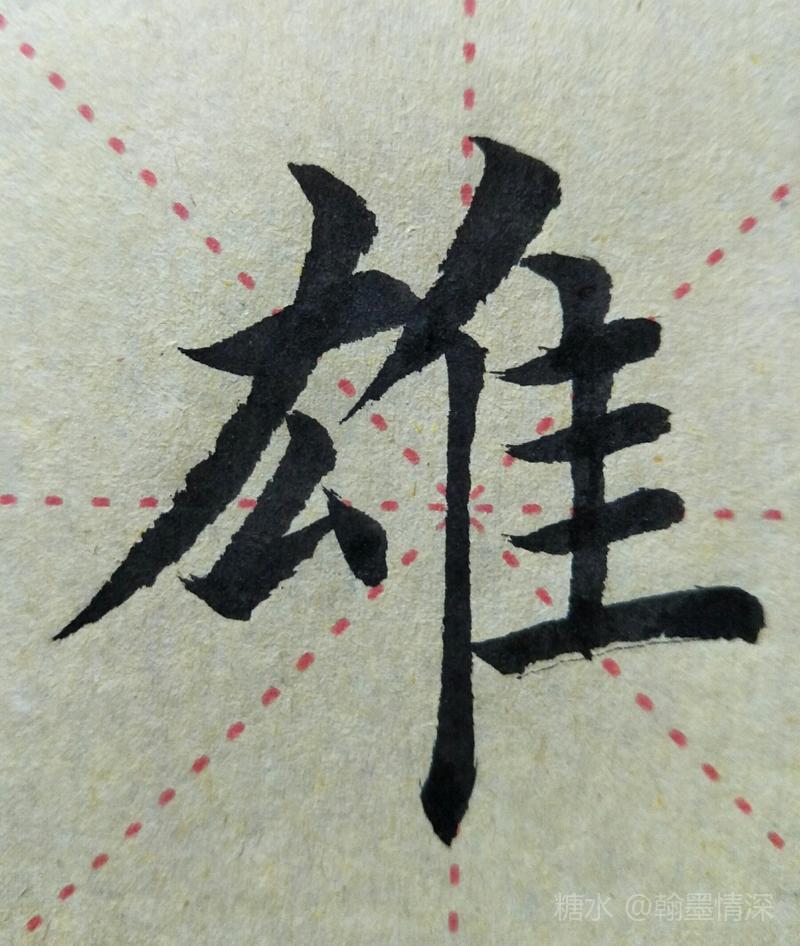 雄
糖水 @翰墨情深